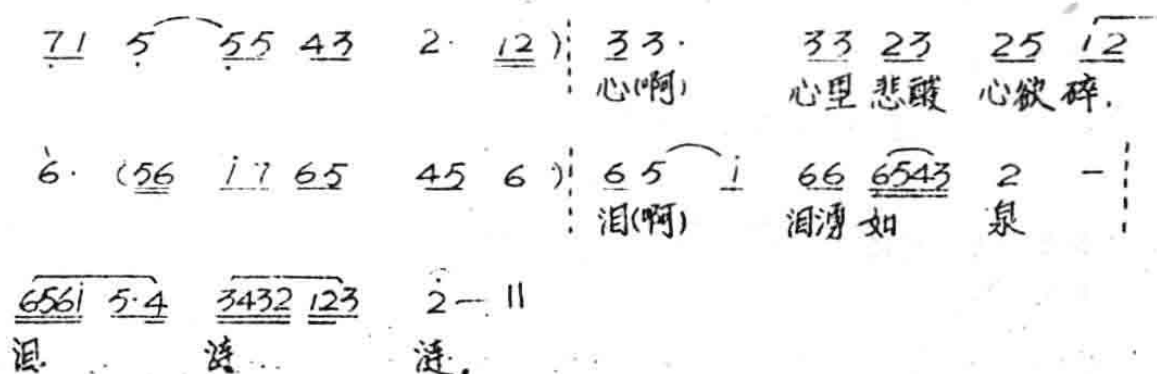 7 1 5 5 5 4 3 2· 1 2 ) 3 3· 3 3 2 3 2 5 i 2
心(啊) 心里 悲酸 心欲碎.
6· (5 6 i 7 6 5 4 5 6 ) 6 5 i 6 6 6 5 4 3 2 -
泪(啊) 泪涌如 泉
6 5 6 i 5·4 3 4 3 2 1 2 3 2 -
泪 涟 涟.